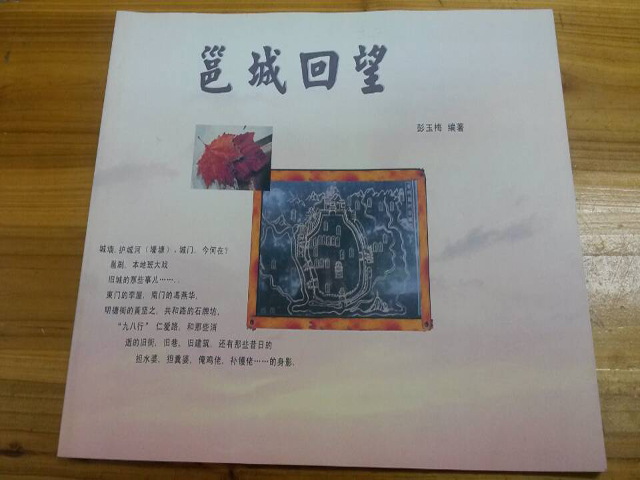 邕城回望
彭玉梅 编著
城墙、护城河(壕塘)、城门，今何在？
邕剧，本地班大戏
旧城的那些事儿……
東门的李屋，南门的高燕华，
明德街的黄竖之，共和路的石牌坊，
“九八行” 仁爱路，和那些消
逝的旧街，旧巷，旧建筑，还有那些昔日的
担水婆、担粪婆、阉鸡佬、补镬佬……的身影。